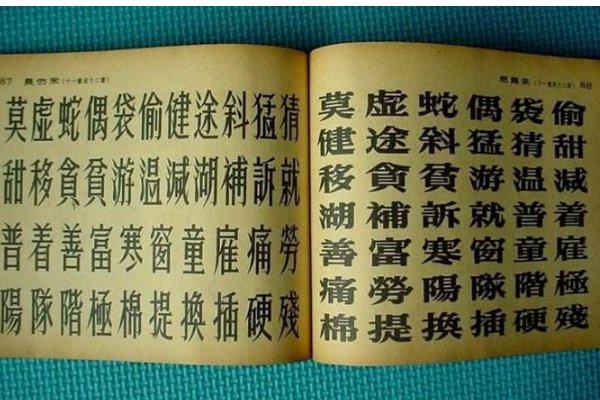 長仿宋(十一畫至十二畫)
莫虛蛇偶袋偷健途斜猛猜
甜移貪貧游温減湖補訴就
普着善富寒窗童雇痛勞
陽隊階極棉提換插硬殘
宋(十一畫至十二畫)
莫虛蛇偶袋偷
健途斜猛猜甜
移貪貧游温減
湖補訴就普着
善富寒窗童雇
痛勞陽隊階極
棉提換插硬殘